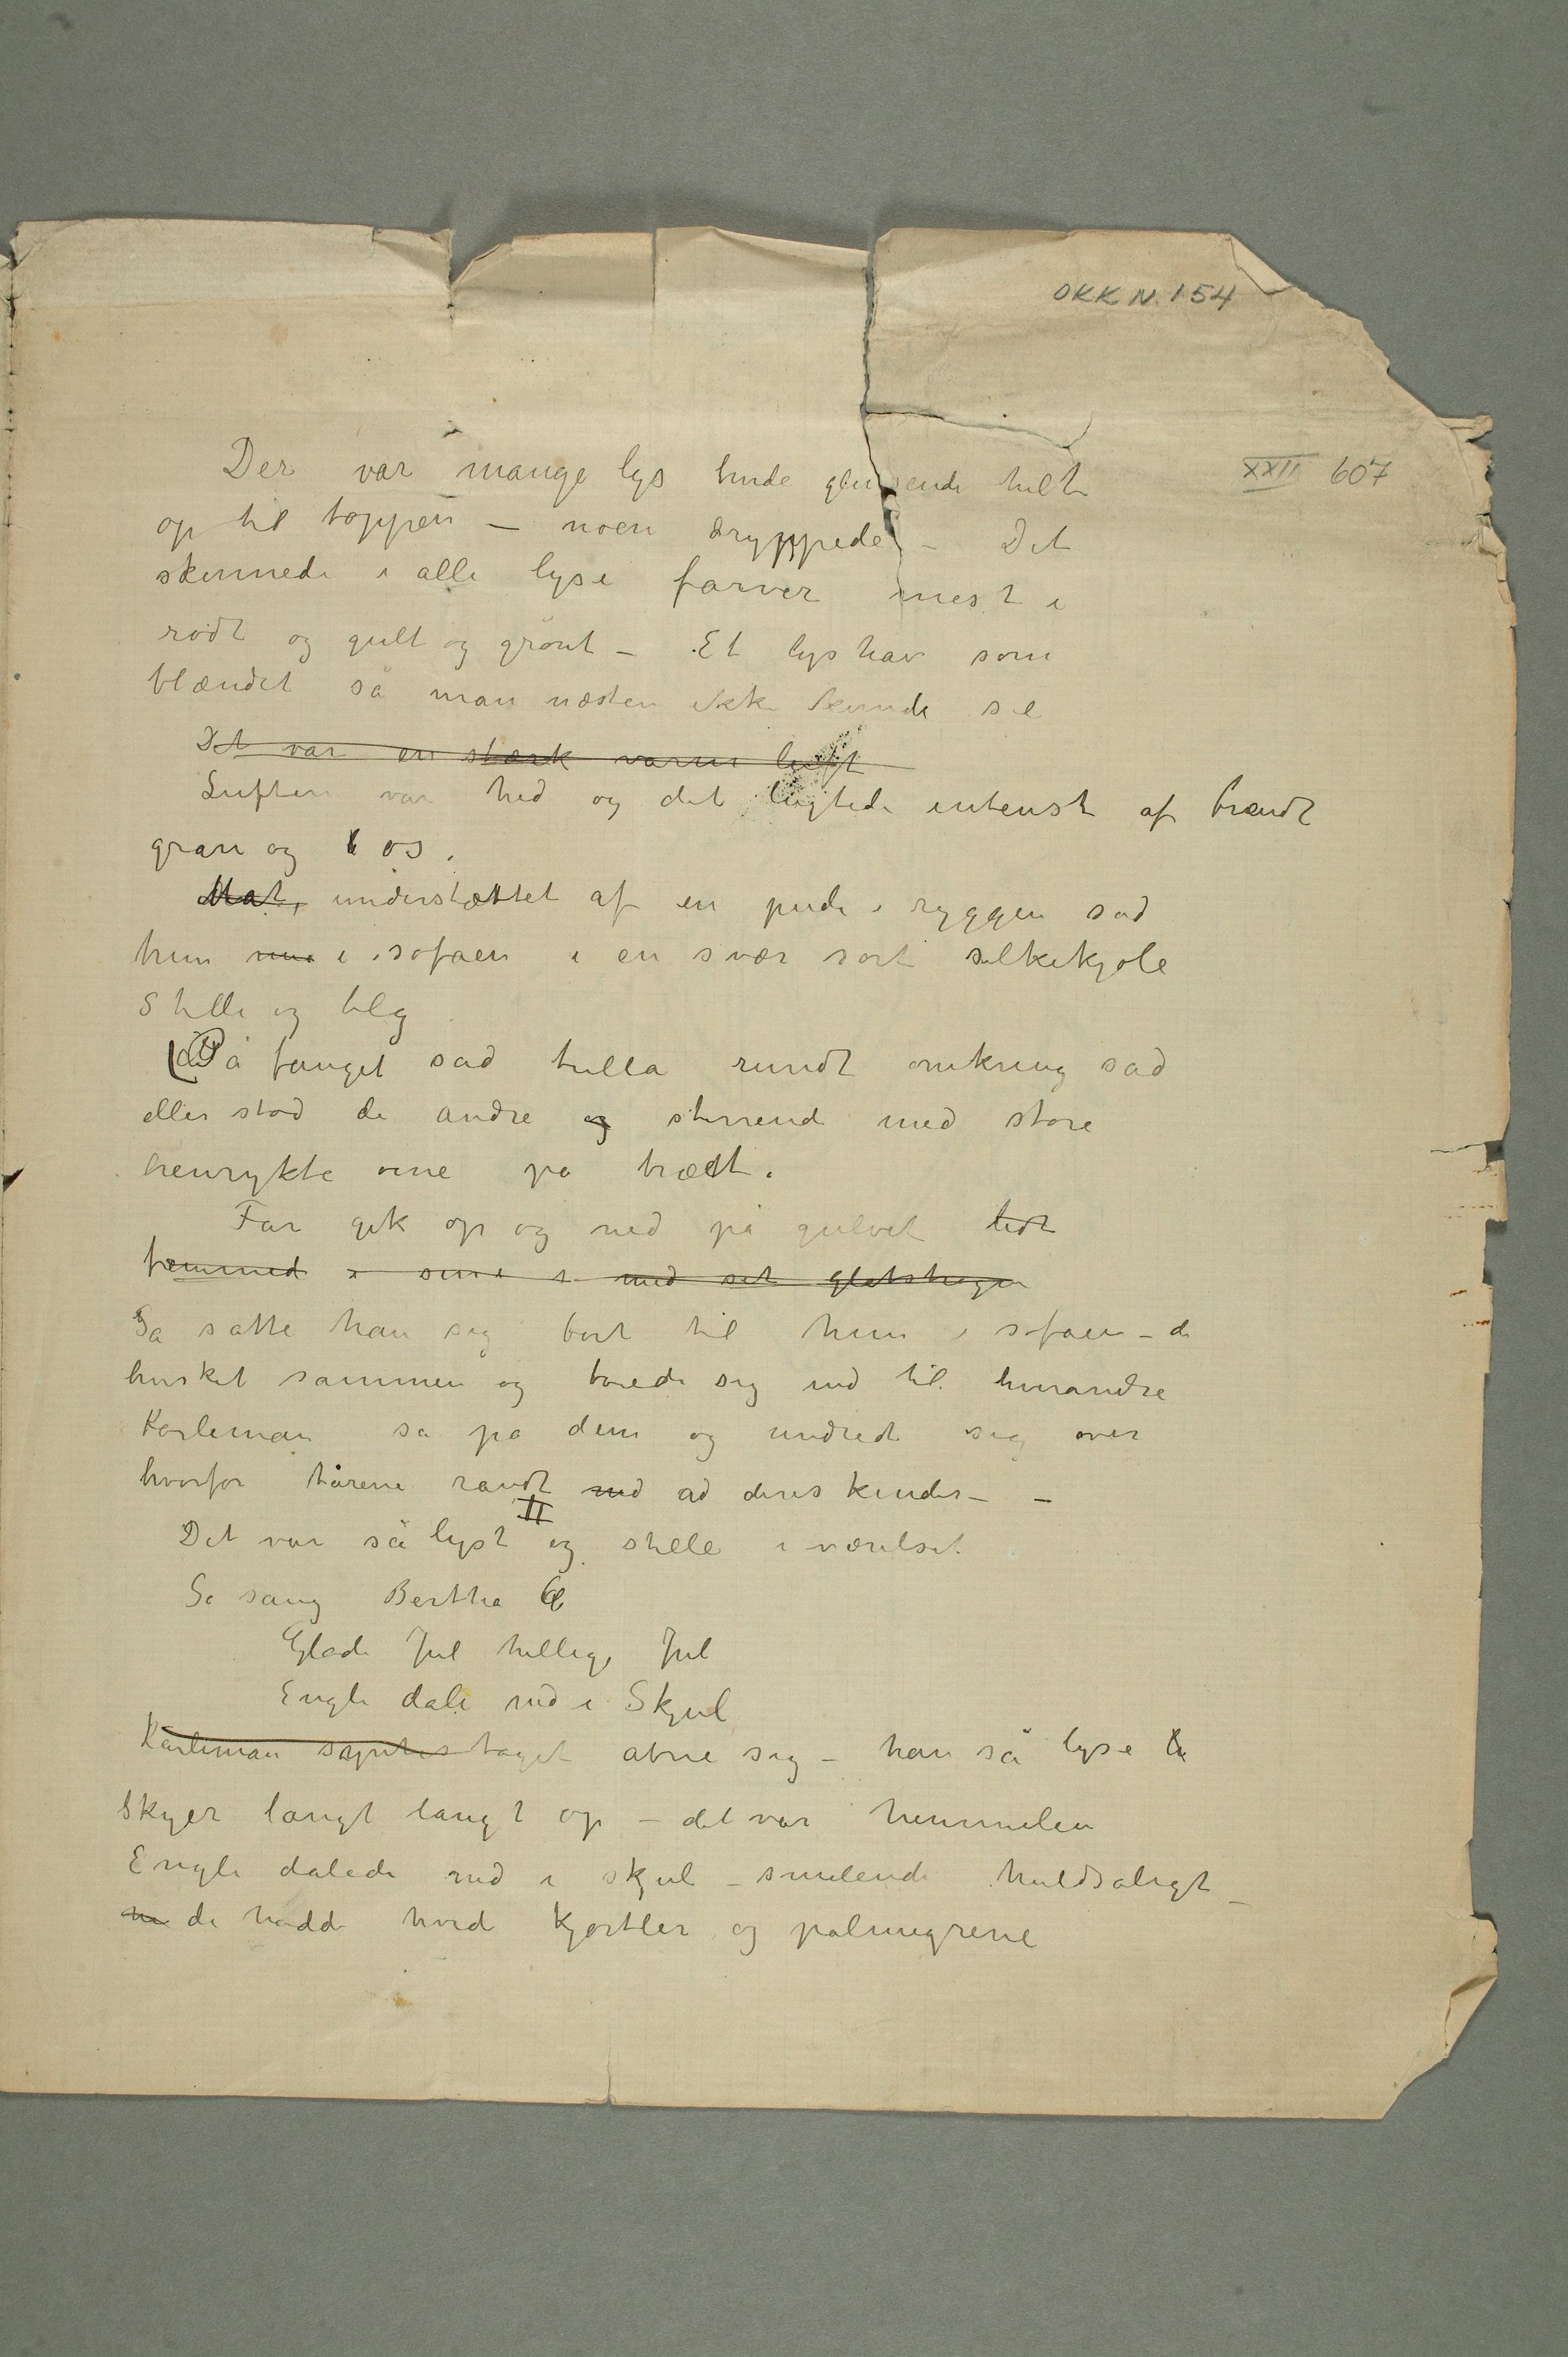 OKK N. 154
XXII 607
Der var mange lys hvide glinsende helt
op til toppen – noen dryppede – Det
skinnede i alle lyse farver mest i
rødt og gult og grønt – Et lyshav som
blændet så man næsten ikke kunde see
Det var en stærk varm luft
Luften var hed og det lugtede intenst af brændt
gran og os.
Mat, understøttet af en pude i ryggen sad
hun nu i sofaen i en svær sort silkekjole
Stille og bleg
På fanget sad tulla rundt omkring sad
eller stod de andre og stirrende med store
henrykte øine på træet.
Far gik op og ned på gulvet lidt
fremmed i sine s med set
Så satte han sig bort til hun i sofaen – de
hvisket sammen og bøiede sig ind til hverandre
Karleman så på dem og undredt sig over
hvorfor tårene randt ned ad deres kinder – –
II
Det var så lyst og stille i værelset
Så sang Bertha
Glade Jul hellige Jul
Engle dale ned i Skjul
Karleman syntes taget åbne sig – han så lyse
skyer langt langt op – det var himmelen
Engle dalede ned i skjul – smilende huldsaligt –
de hadde hvid kjortler og palmegrene